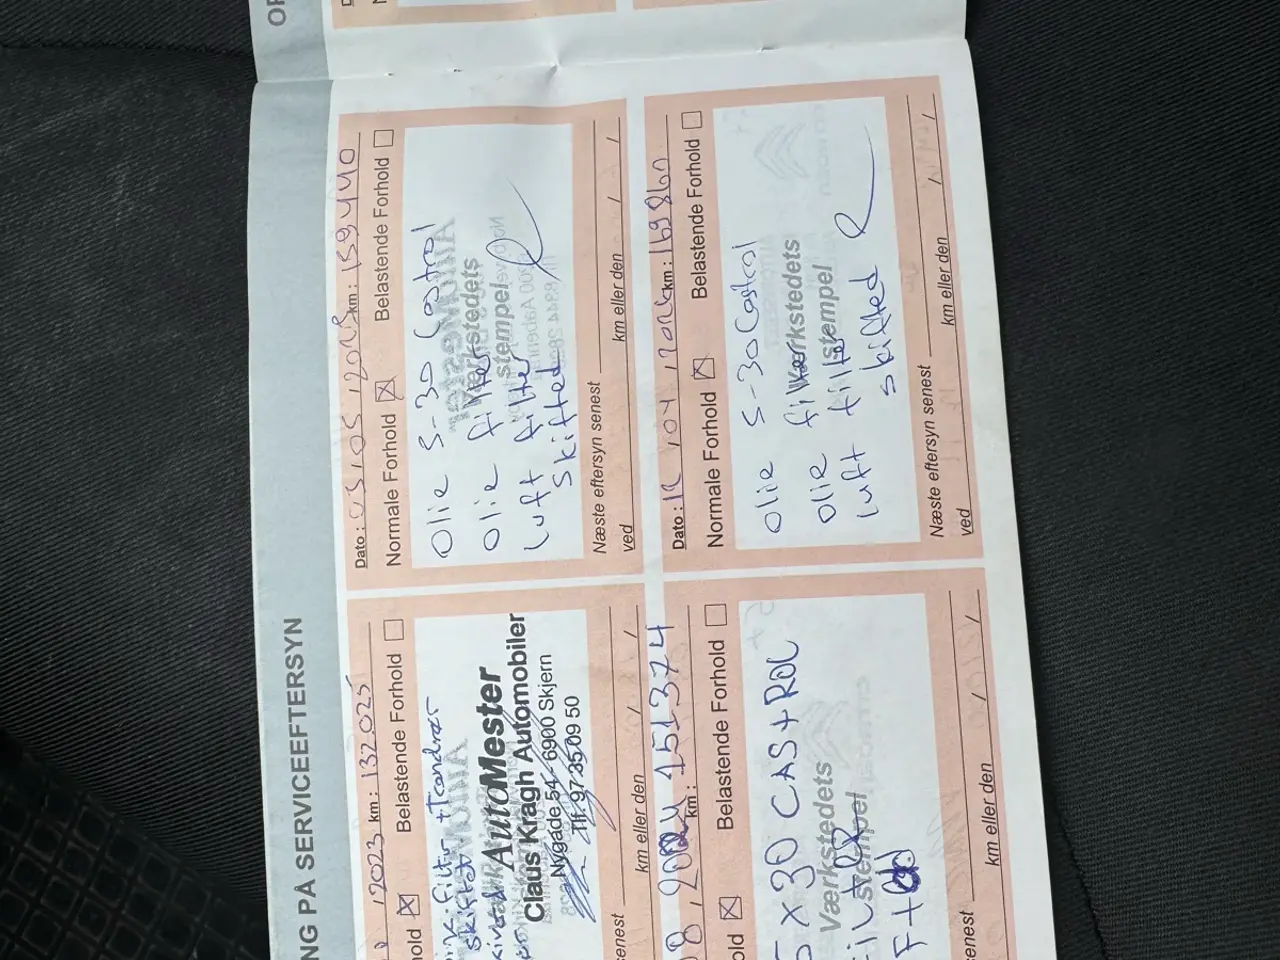 NG PÅ SERVICEEFTERSYN
2023 km: 132025
hold ☒ Belastende Forhold ☐
skiftet
AutoMester
Claus Kragh Automobiler
Nygade 54 - 6900 Skjern
Tlf. 97 35 09 50
senest
km eller den / /
Dato: 05/05/2025 km: 159440
Normale Forhold ☒ Belastende Forhold ☐
Olie 5-30 Castrol
Olie filter
luft filter
skifted
Værkstedets
stempel
Næste eftersyn senest
ved km eller den / /
08.2024 km: 151374
old ☒ Belastende Forhold ☐
5 x 30 CAStROL
FILtER
Værkstedets
stempel
senest
km eller den / /
Dato: km: 169860
Normale Forhold ☒ Belastende Forhold ☐
Olie 5-30 Castrol
Olie filter
luft filter
skifted
Værkstedets
stempel
Næste eftersyn senest
ved km eller den / /